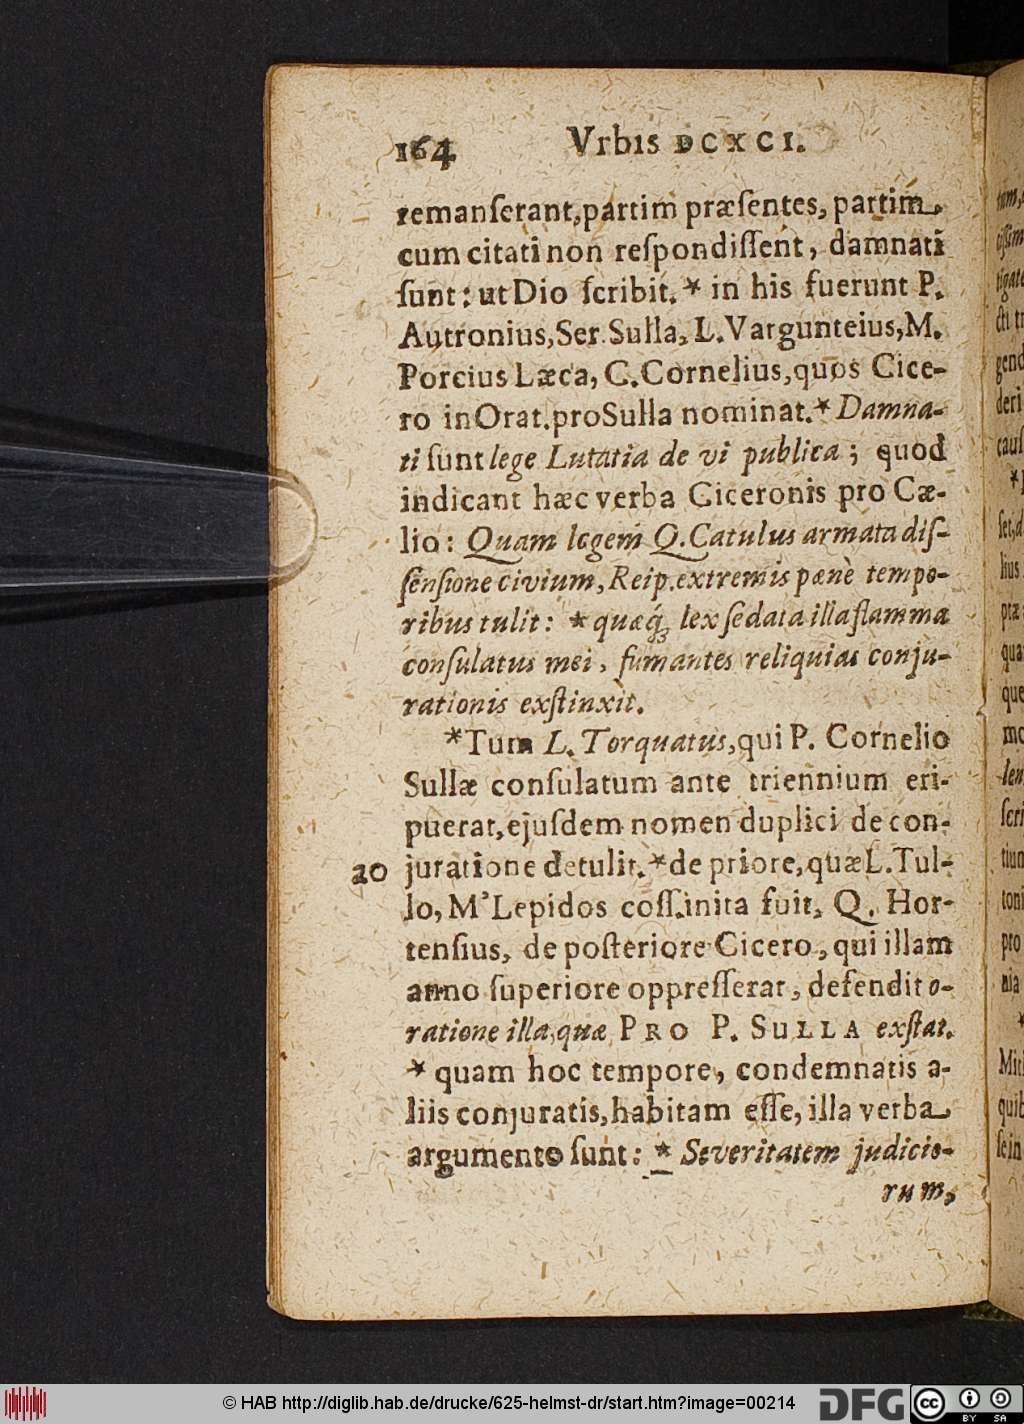 164 Vrbis DCXCI.
remanſerant, partim præſentes, partim
cum citati non reſpondiſſent, damnati
ſunt: ut Dio ſcribit. * in his fuerunt P.
Autronius, Ser. Sulla, L. Vargunteius, M.
Porcius Læca, C. Cornelius, quos Cice-
ro in Orat. pro Sulla nominat. * Damna-
ti ſunt lege Lutatia de vi publica; quod
indicant hæc verba Ciceronis pro Cæ-
lio: Quam legem Q. Catulus armata diſ-
ſenſione civium, Reip. extremis pænè tempo-
ribus tulit: * quæq́ꝫ lex ſedata illa flamma
conſulatus mei, fumantes reliquias conju-
rationis exſtinxit.
*Tum L. Torquatus, qui P. Cornelio
Sullæ conſulatum ante triennium eri-
puerat, ejuſdem nomen duplici de con-
20 juratione detulit. * de priore, quæ L. Tul-
lo, M' Lepidos coſſ. inita fuit, Q. Hor-
tenſius, de poſteriore Cicero, qui illam
anno ſuperiore oppreſſerat, defendit o-
ratione illa, quæ PRO P. SULLA exſtat.
* quam hoc tempore, condemnatis a-
liis conjuratis, habitam eſſe, illa verba
argumento ſunt: * Severitatem judicio-
rum,
tum,
gate
cti tr
gend
deri
cauſ
ſet, d
lius
ptæ
qua
que
mo
len
ſcri
tiun
toni
pro
nia
Mit
quib
ſe in
© HAB http://diglib.hab.de/drucke/625-helmst-dr/start.htm?image=00214
DFG
cc
BY SA